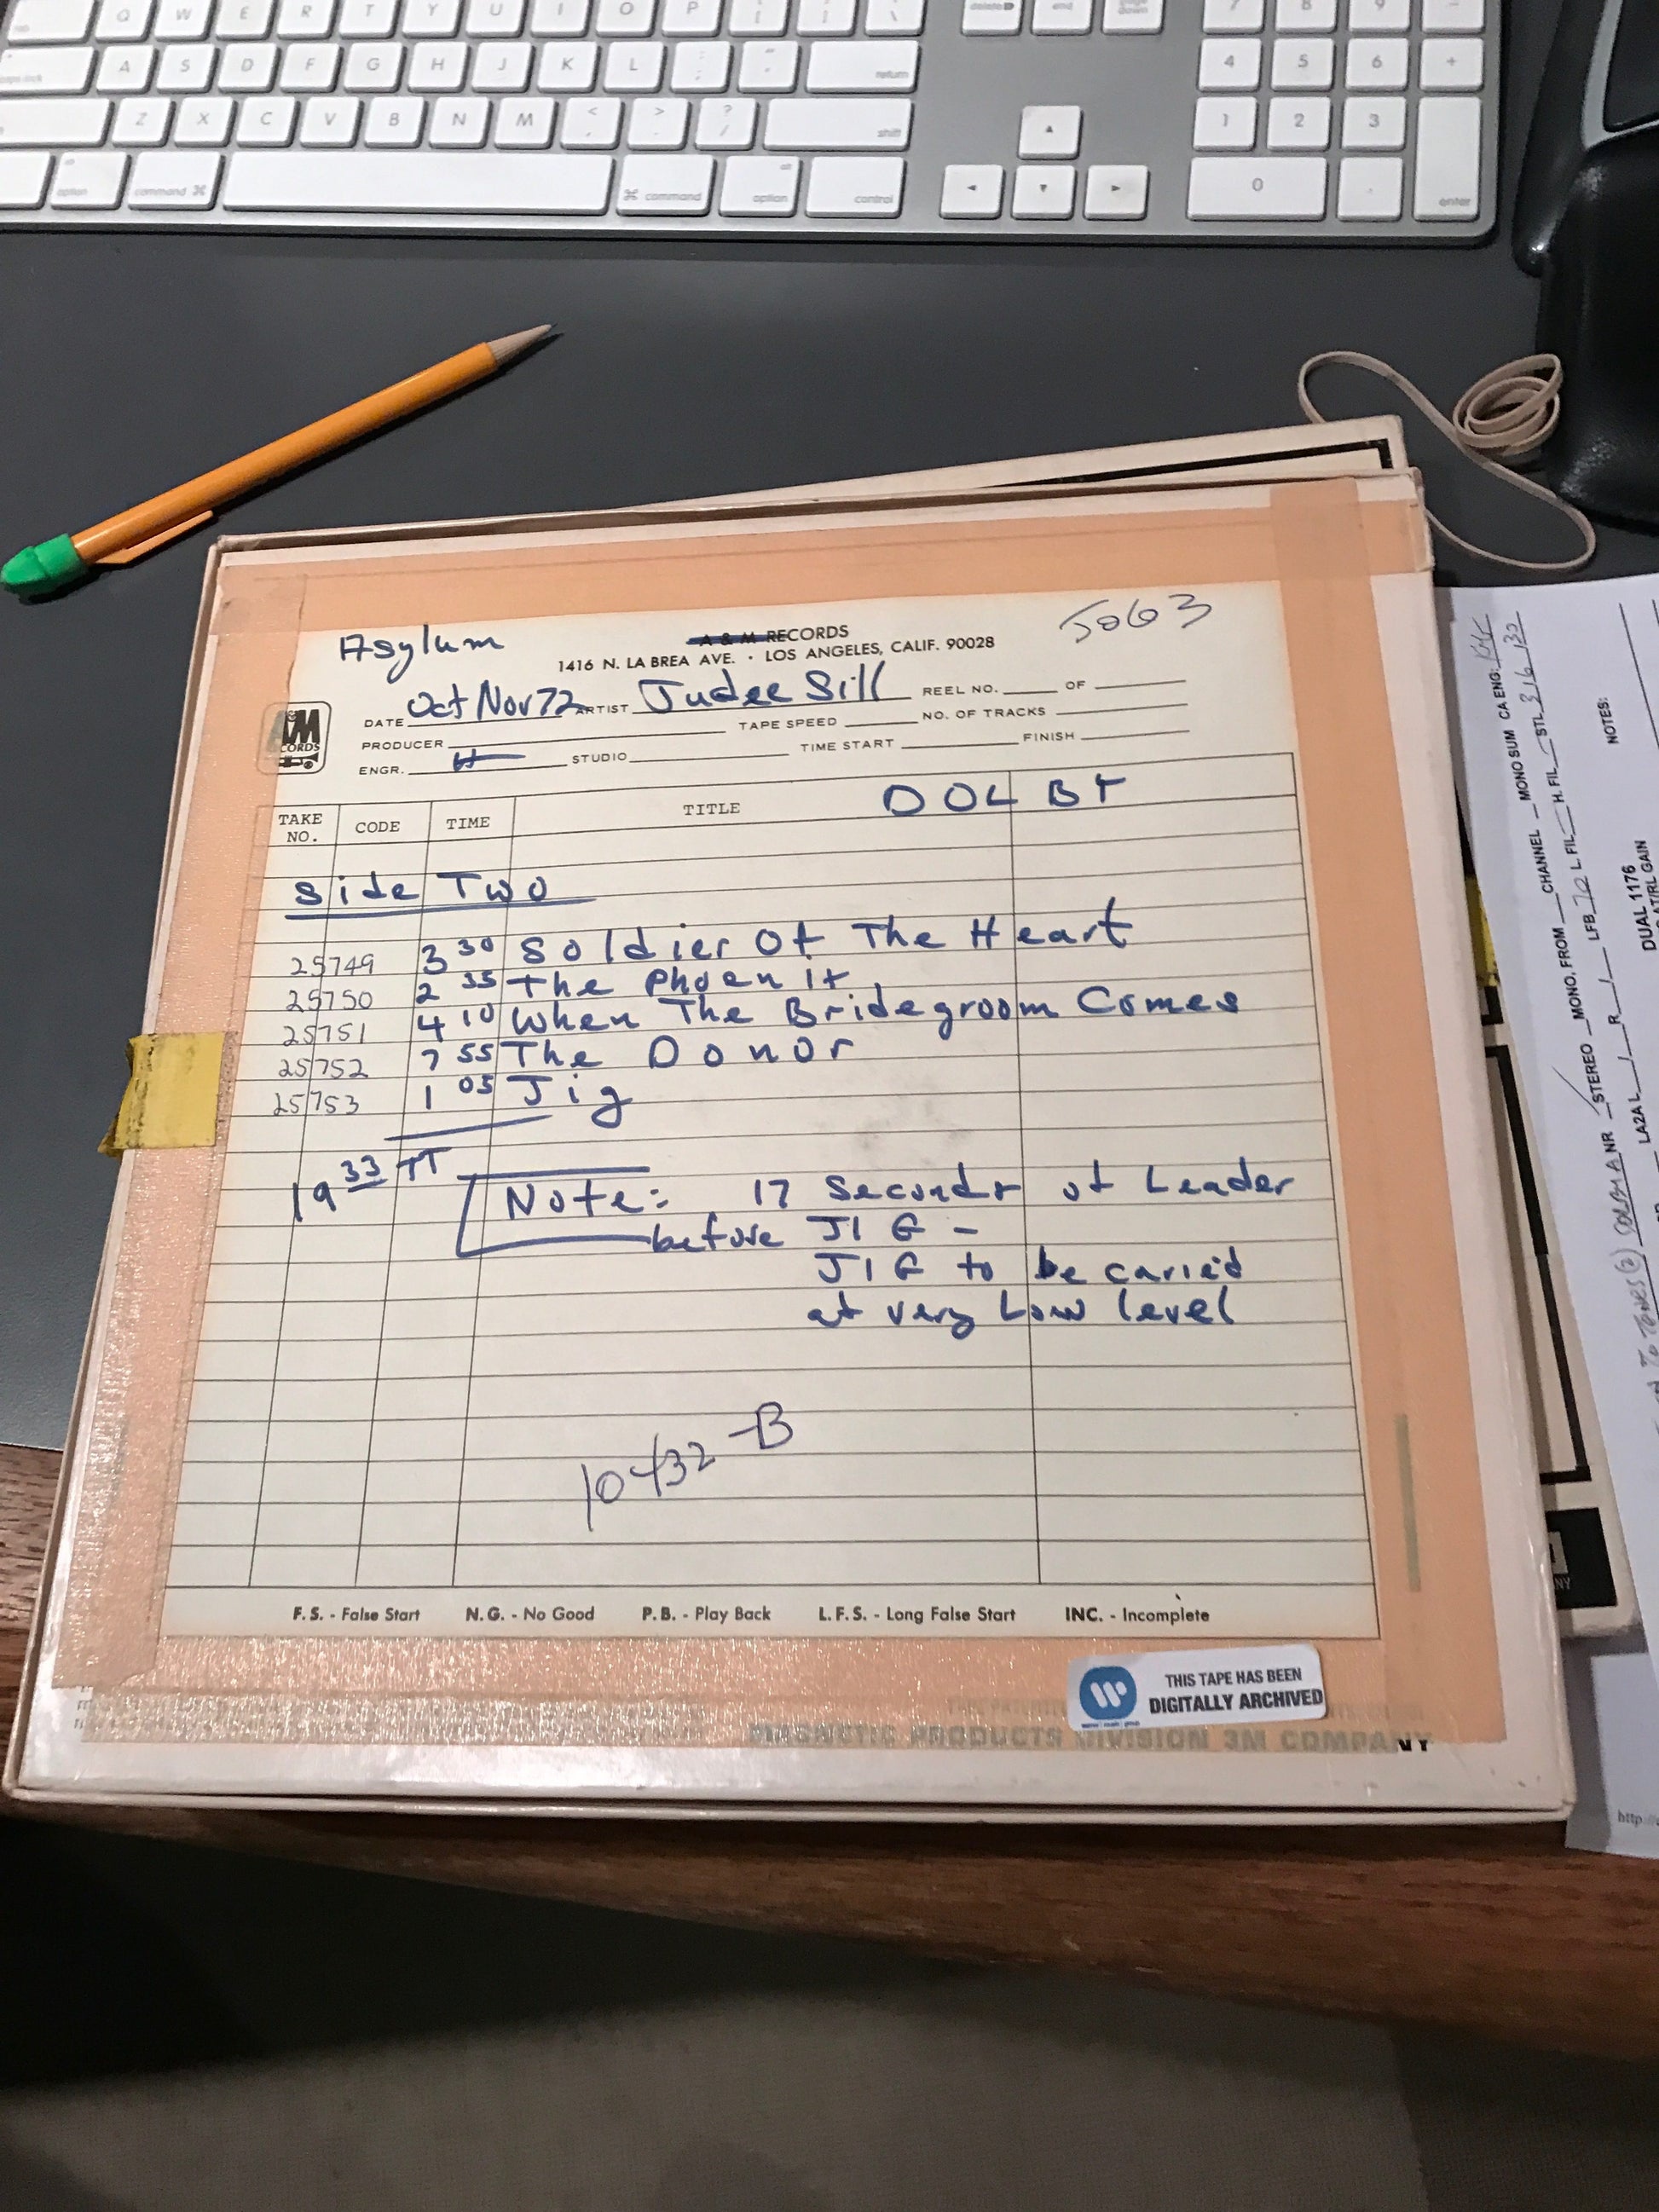 Q W E R T Y U I O P
A S D F G H J K L return
Z X C V B N M < > ? / shift
option command ⌘ ⌘ command option control
delete end page down
7 8 9
4 5 6 +
1 2 3
0 . enter
Asylum A & M RECORDS 5063
1416 N. LA BREA AVE. • LOS ANGELES, CALIF. 90028
DATE Oct Nov 72 ARTIST Judee Sill REEL NO. OF
PRODUCER TAPE SPEED NO. OF TRACKS
ENGR. H STUDIO TIME START FINISH
A&M
RECORDS
TAKE NO. CODE TIME TITLE DOLBY
Side Two
25749 3 30 Soldier Of The Heart
25750 2 35 The Phoenix
25751 4 10 When The Bridegroom Comes
25752 7 55 The Donor
25753 1 05 Jig
19 33 TT
Note: 17 Seconds of Leader
before JIG –
JIG to be caried
at very Low level
10432-B
F.S. - False Start N.G. - No Good P.B. - Play Back L.F.S. - Long False Start INC. - Incomplete
THIS TAPE HAS BEEN
DIGITALLY ARCHIVED
MAGNETIC PRODUCTS DIVISION 3M COMPANY
CHANNEL MONO SUM CA ENG:
STEREO MONO, FROM
LFB 70 L. FIL H. FIL STL 316
NOTES:
NR
LA2A L R
DUAL 1176
http://